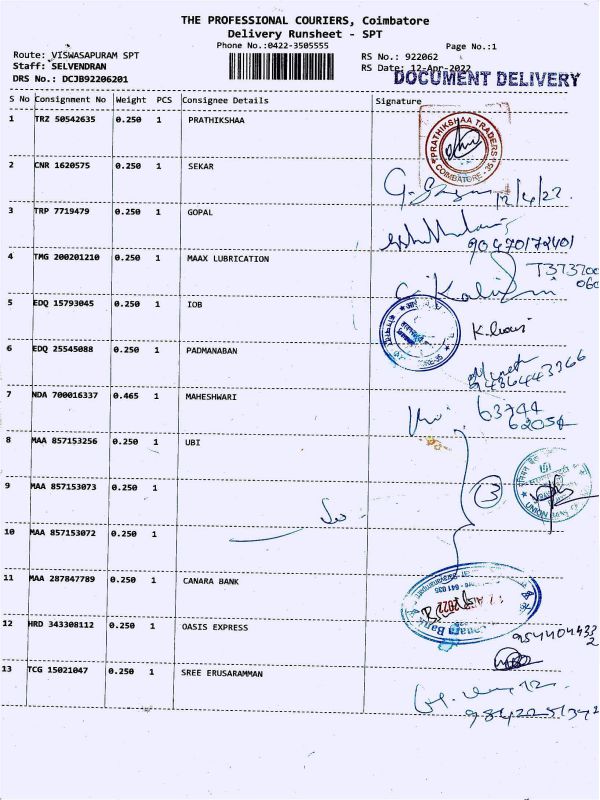 THE PROFESSIONAL COURIERS, Coimbatore
Delivery Runsheet - SPT
Phone No.:0422-3505555
Page No.:1
Route: VISWASAPURAM SPT
RS No.: 922062
Staff: SELVENDRAN
RS Date: 12-Apr-2022
DRS No.: DCJB92206201
DOCUMENT DELIVERY
S No Consignment No Weight PCS Consignee Details Signature
1 TRZ 50542635 0.250 1 PRATHIKSHAA
PRATHIKSHAA TRADERS COIMBATORE - 35
2 CNR 1620575 0.250 1 SEKAR
12/4/22.
3 TRP 7719479 0.250 1 GOPAL
90470172401
4 TMG 200201210 0.250 1 MAAX LUBRICATION
5 EDQ 15793045 0.250 1 IOB
6 EDQ 25545088 0.250 1 PADMANABAN
7 NDA 700016337 0.465 1 MAHESHWARI
63744
8 MAA 857153256 0.250 1 UBI
9 MAA 857153073 0.250 1
3
UNION BANK
10 MAA 857153072 0.250 1
11 MAA 287847789 0.250 1 CANARA BANK
Canara Bank
641 035
12 HRD 343308112 0.250 1 OASIS EXPRESS
13 TCG 15021047 0.250 1 SREE ERUSARAMMAN